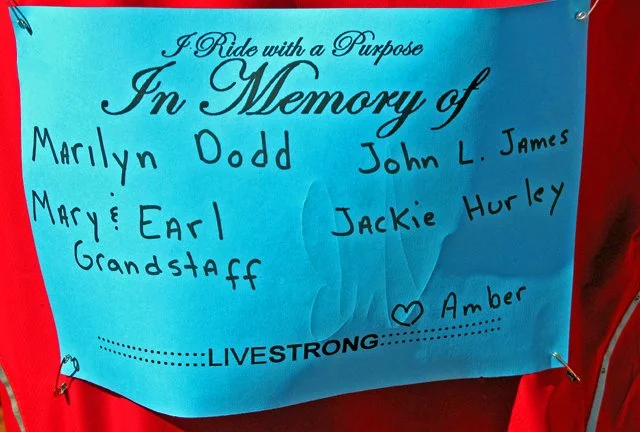 I Ride with a Purpose
In Memory of
Marilyn Dodd
John L. James
Mary & Earl
Grandstaff
Jackie Hurley
♡ Amber
LIVESTRONG